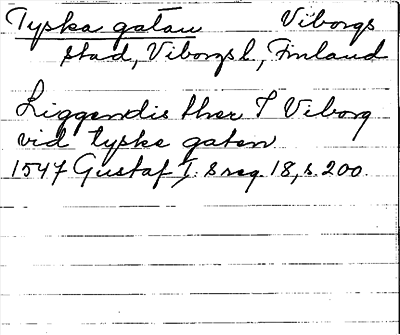 Tyska gatan Viborgs
stad, Viborgs l, Finland
Liggendis ther I Viborg
vid tyske gaten
1547 Gustaf I:s reg. 18, s. 200.